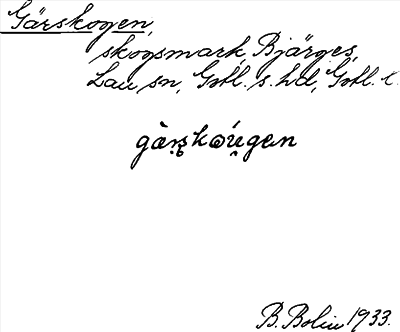 Gärskogen,
skogsmark, Bjärges,
Lau sn, Gotl. s. hd, Gotl. l.
B. Bolin 1933.